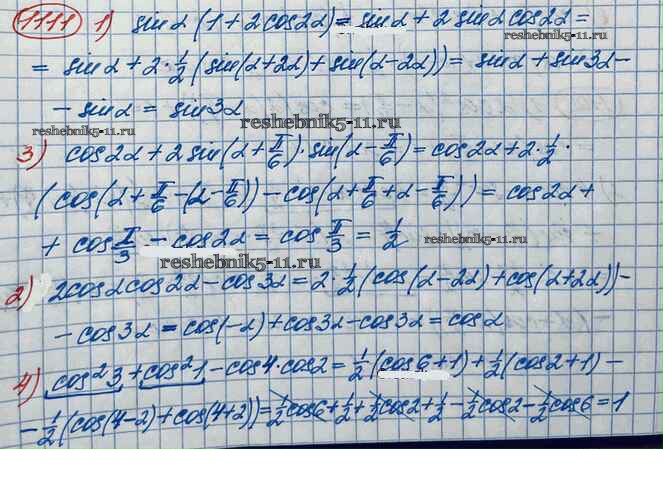 1111 1) sin α (1 + 2 cos 2α) = sin α + 2 sin α cos 2α =
= sin α + 2 · 1/2 (sin(α + 2α) + sin(α - 2α)) = sin α + sin 3α -
- sin α = sin 3α
reshebnik5-11.ru
reshebnik5-11.ru
3) cos 2α + 2 sin(α + π/6) · sin(α - π/6) = cos 2α + 2 · 1/2 ·
(cos(α + π/6 - (α - π/6)) - cos(α + π/6 + α - π/6)) = cos 2α +
+ cos π/3 - cos 2α = cos π/3 = 1/2
reshebnik5-11.ru
reshebnik5-11.ru
2) 2 cos α cos 2α - cos 3α = 2 · 1/2 (cos(α - 2α) + cos(α + 2α)) -
- cos 3α = cos(-α) + cos 3α - cos 3α = cos α
4) cos² 3 + cos² 1 - cos 4 · cos 2 = 1/2 (cos 6 + 1) + 1/2 (cos 2 + 1) -
- 1/2 (cos(4 - 2) + cos(4 + 2)) = 1/2 cos 6 + 1/2 + 1/2 cos 2 + 1/2 - 1/2 cos 2 - 1/2 cos 6 = 1